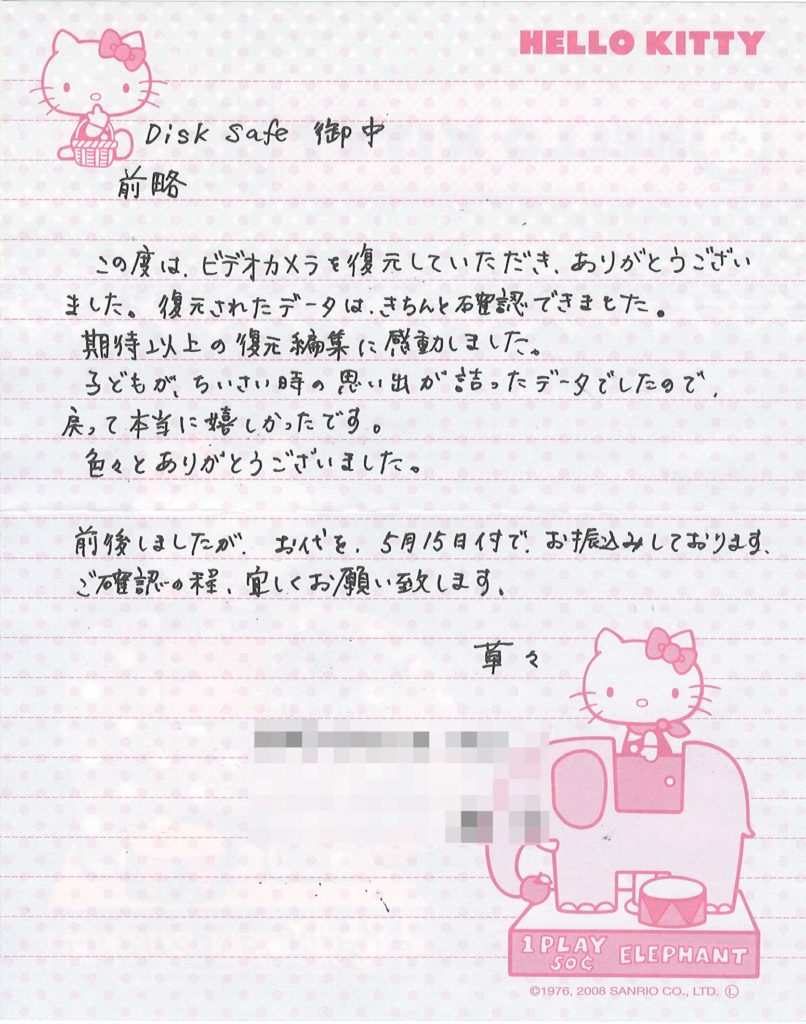 HELLO KITTY
Disk Safe 御中
前略
この度は、ビデオカメラを復元していただき、ありがとうござい
ました。復元されたデータは、きちんと確認できました。
期待以上の復元編集に感動しました。
子どもが、ちいさい時の思い出が詰ったデータでしたので、
戻って本当に嬉しかったです。
色々とありがとうございました。
前後しましたが、お代を、5月15日付で、お振込みしております、
ご確認の程、宜しくお願い致します、
草々
1 PLAY
50¢
ELEPHANT
©1976, 2008 SANRIO CO., LTD. Ⓛ